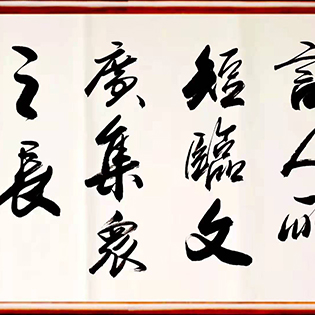 人所
短臨文
廣集眾
之長